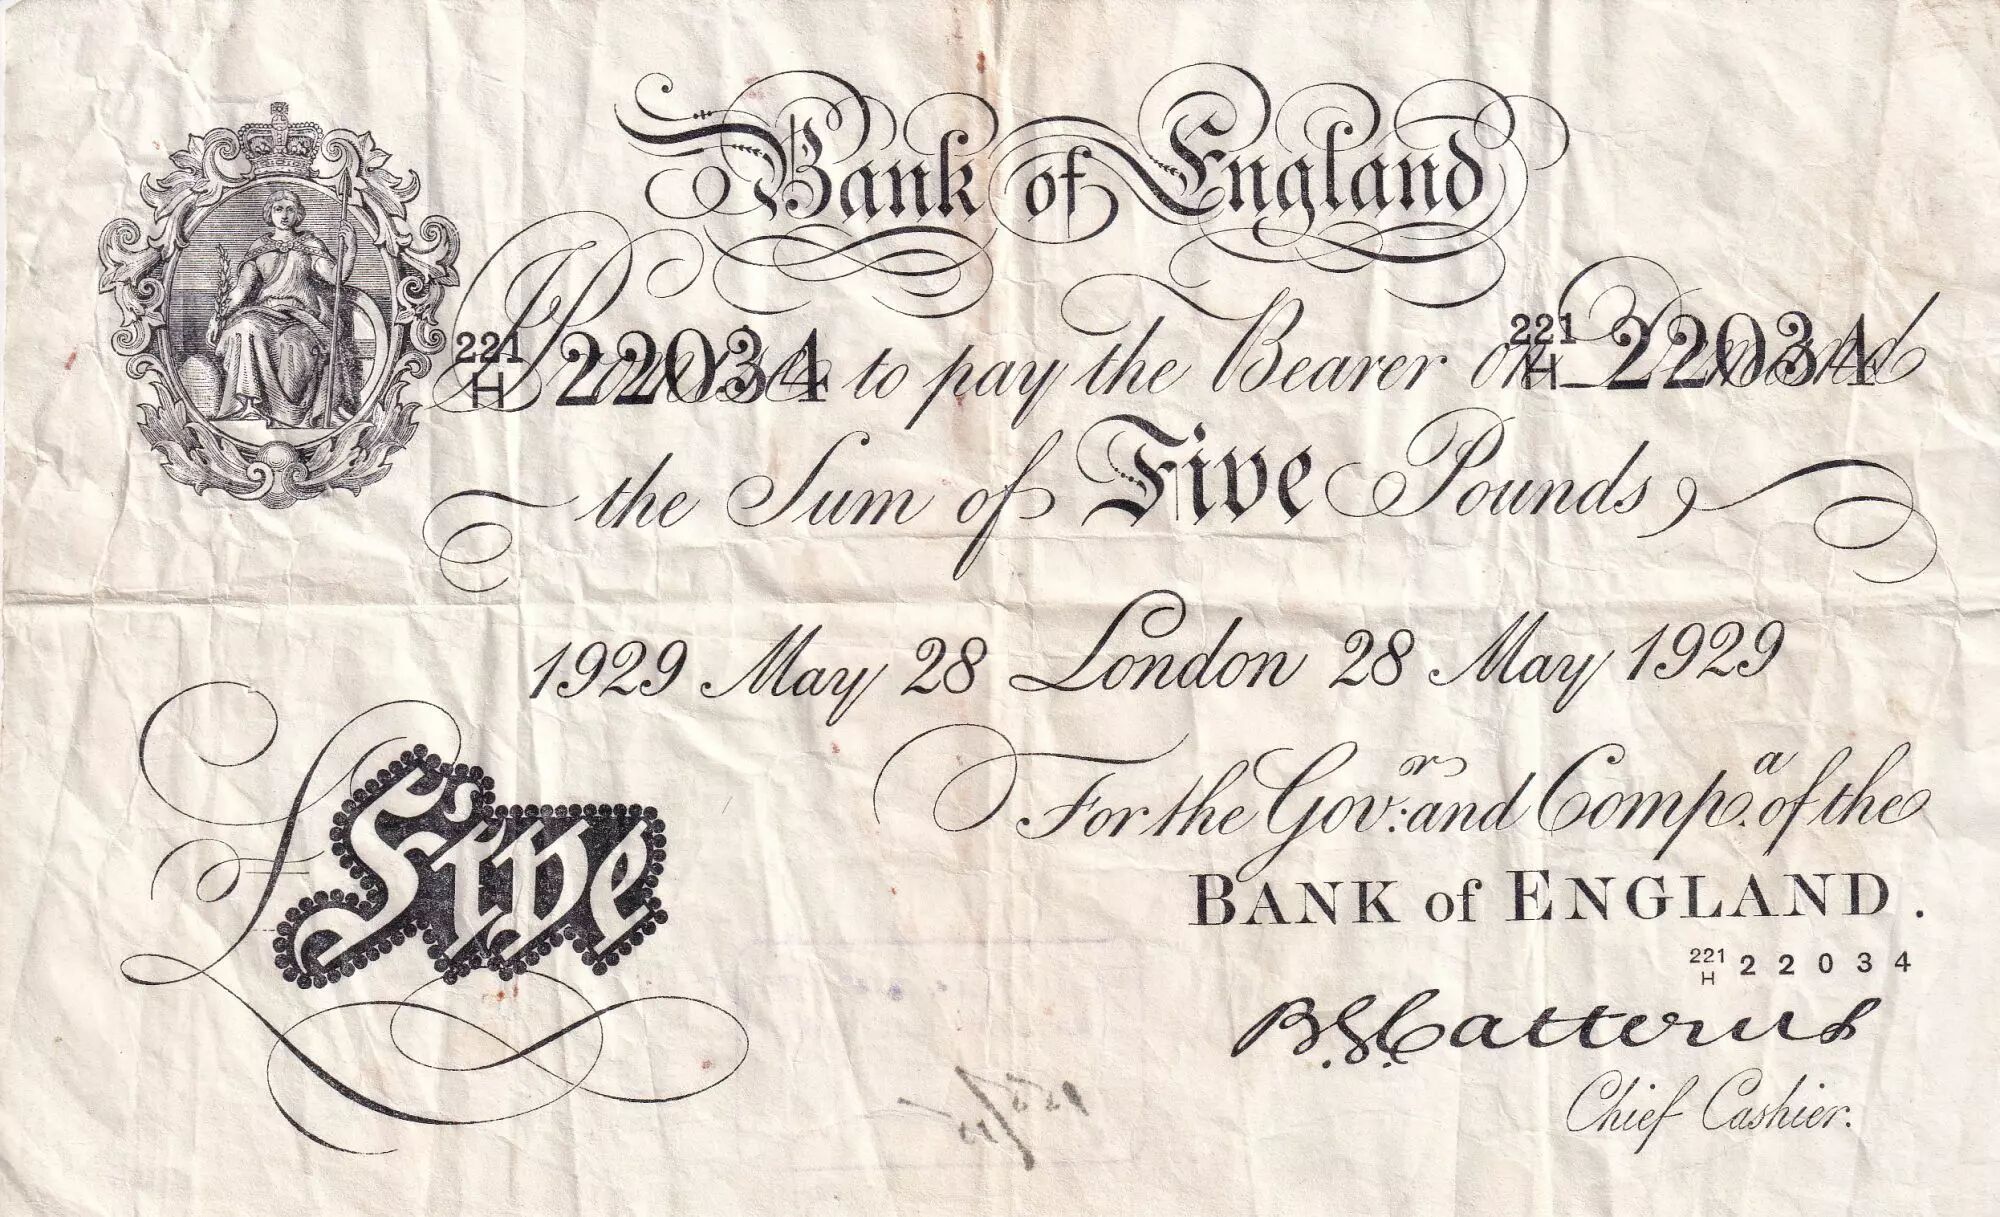 Bank of England
221 H 22034 I Promise to pay the Bearer on Demand 221 H 22034
the Sum of Five Pounds
1929 May 28 London 28 May 1929
For the Gov:r and Comp.a of the
BANK of ENGLAND.
221 H 22034
£Five
B.G. Catterns
Chief Cashier.